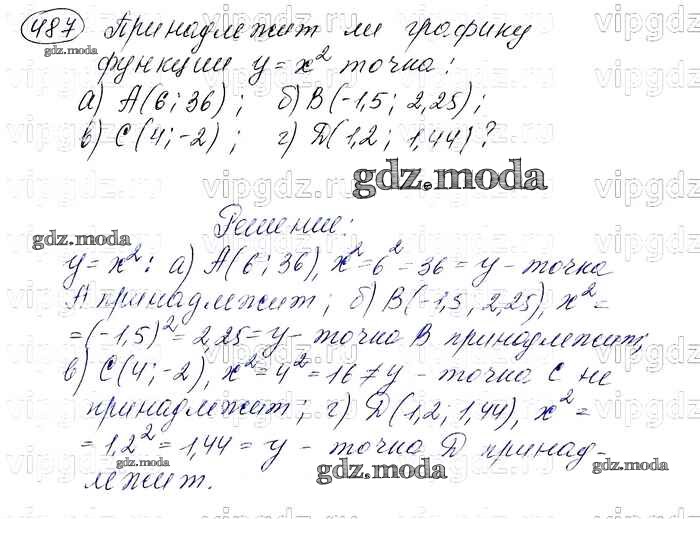 487 Принадлежит ли графику
gdz.moda
функции y=x² точка:
а) A(6; 36); б) B(-1,5; 2,25);
в) C(4; -2); г) D(1,2; 1,44)?
gdz.moda
gdz.moda
Решение:
gdz.moda
y=x²: а) A(6; 36), x²=6²=36=y - точка
A принадлежит; б) B(-1,5, 2,25), x²=
=(-1,5)²=2,25=y - точка B принадлежит;
в) C(4; -2), x²=4²=16≠y - точка C не
принадлежит; г) D(1,2; 1,44), x²=
=1,2²=1,44=y - точка D принад-
gdz.moda gdz.moda gdz.moda
лежит.